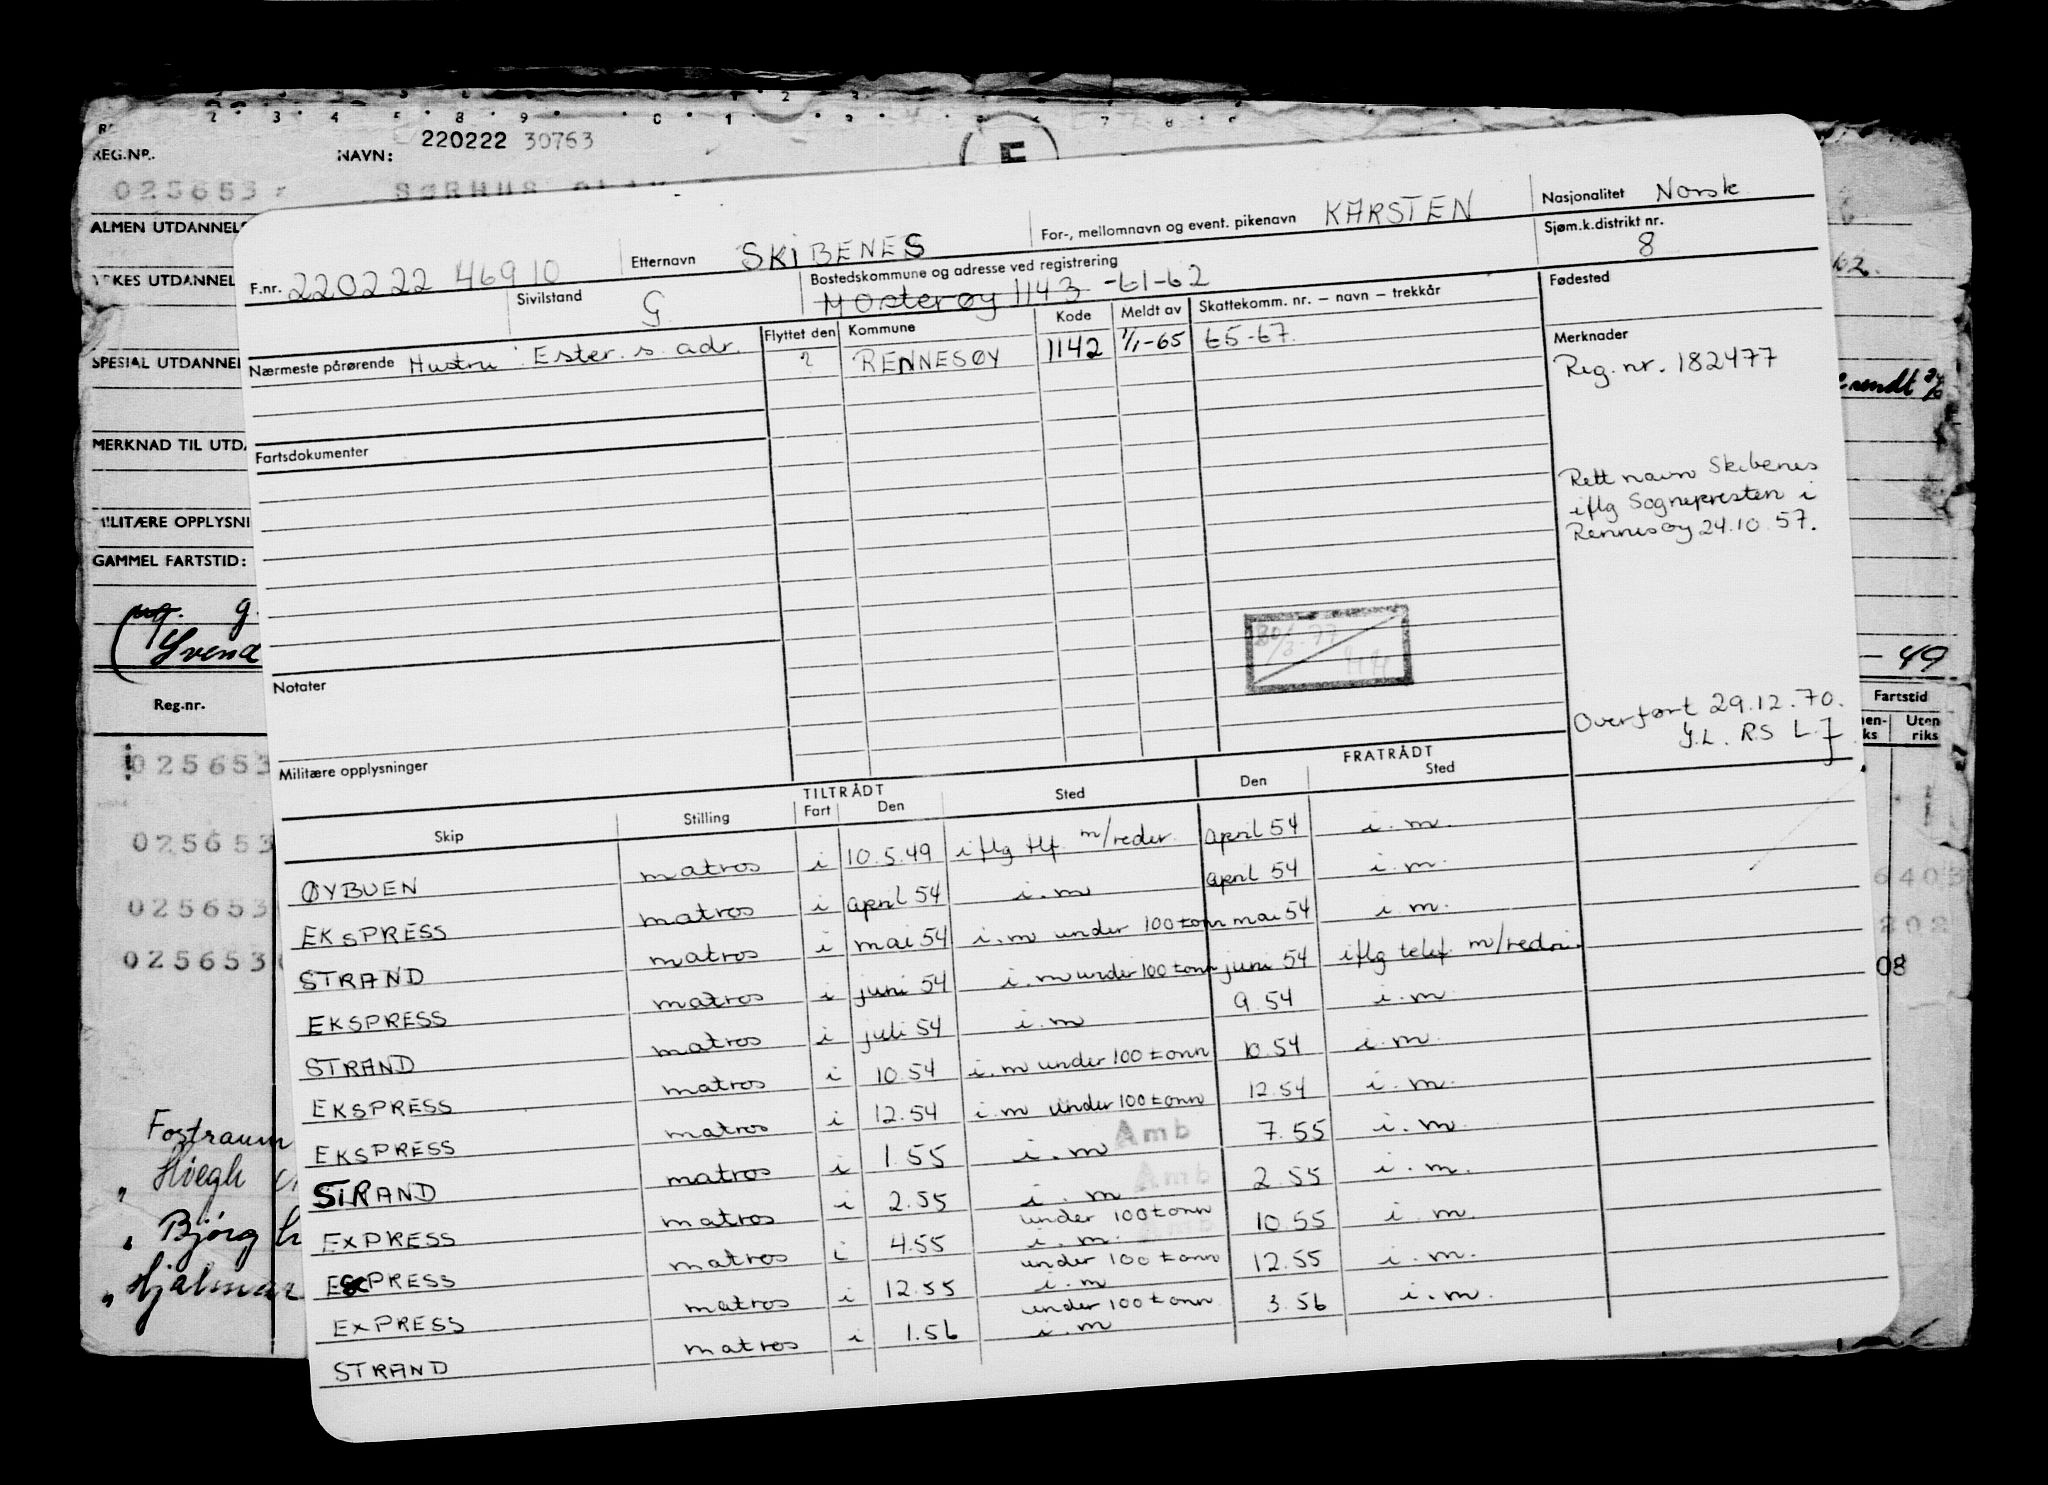 REG.NR. NAVN: 220222 30763
025653
ALMEN UTDANNELS
YRKES UTDANNEL
SPESIAL UTDANNEL
MERKNAD TIL UTDA
MILITÆRE OPPLYSNI
GAMMEL FARTSTID:
g.
Svend
Reg.nr.
025653
025653
025653
025653
Fostraum
" Hviegh
" Bjørg
" Hjalmar
F.nr. 220222 46910 Etternavn SKIBENES For-, mellomnavn og event. pikenavn KARSTEN Nasjonalitet Norsk
Sivilstand G Bostedskommune og adresse ved registrering Mosterøy 1143 -61-62 Sjøm.k.distrikt nr. 8
Nærmeste pårørende Hustru: Ester s. adr. Flyttet den Kommune Kode Meldt av Skattekomm. nr. – navn – trekkår Fødested
? RENNESØY 1142 1/1-65 65-67. Merknader
Reg. nr. 182477
Fartsdokumenter
Rett navn Skibenes
iflg Sognepresten i
Rennesøy 24.10.57.
30/3-77
HH
Notater
Overført 29.12.70.
Militære opplysninger
TILTRÅDT FRATRÅDT
Skip Stilling Fart Den Sted Den Sted
ØYBUEN matros i 10.5.49 iflg tlf. m/reder. april 54 i.m.
EKSPRESS matros i april 54 i.m april 54 i.m.
STRAND matros i mai 54 i.m under 100 tonn mai 54 i.m.
EKSPRESS matros i juni 54 i.m under 100 tonn juni 54 iflg telef. m/rederi.
STRAND matros i juli 54 i.m 9.54 i.m.
EKSPRESS matros i 10.54 i.m under 100 tonn 10.54 i.m.
EKSPRESS matros i 12.54 i.m under 100 tonn 12.54 i.m.
STRAND matros i 1.55 i.m Amb 7.55 i.m.
EXPRESS matros i 2.55 i.m Amb under 100 tonn 2.55 i.m.
EXPRESS matros i 4.55 i.m. Amb under 100 tonn 10.55 i.m.
EXPRESS matros i 12.55 i.m under 100 tonn 12.55 i.m.
STRAND matros i 1.56 i.m 3.56 i.m.
– 49
Fartstid
Uten
riks
08